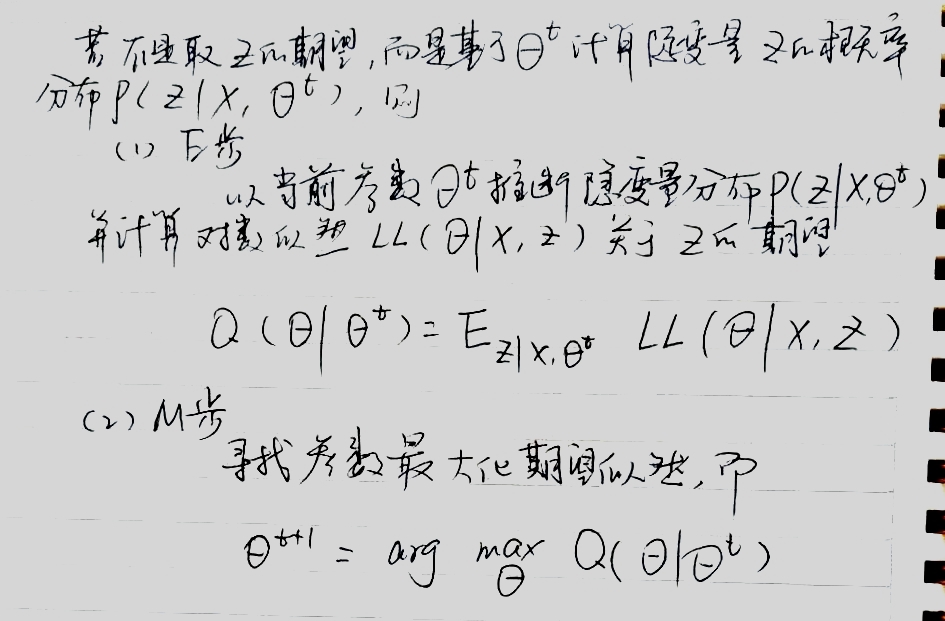 若不是取Z的期望,而是基于Θᵗ计算隐变量Z的概率
分布P(Z|X, Θᵗ), 则
(1) E步
以当前参数Θᵗ推断隐变量分布P(Z|X,Θᵗ)
并计算对数似然 LL(Θ|X, Z) 关于Z的期望
Q(Θ|Θᵗ) = E_{Z|X,Θᵗ} LL(Θ|X, Z)
(2) M步
寻找参数最大化期望似然, 即
Θᵗ⁺¹ = arg max_Θ Q(Θ|Θᵗ)